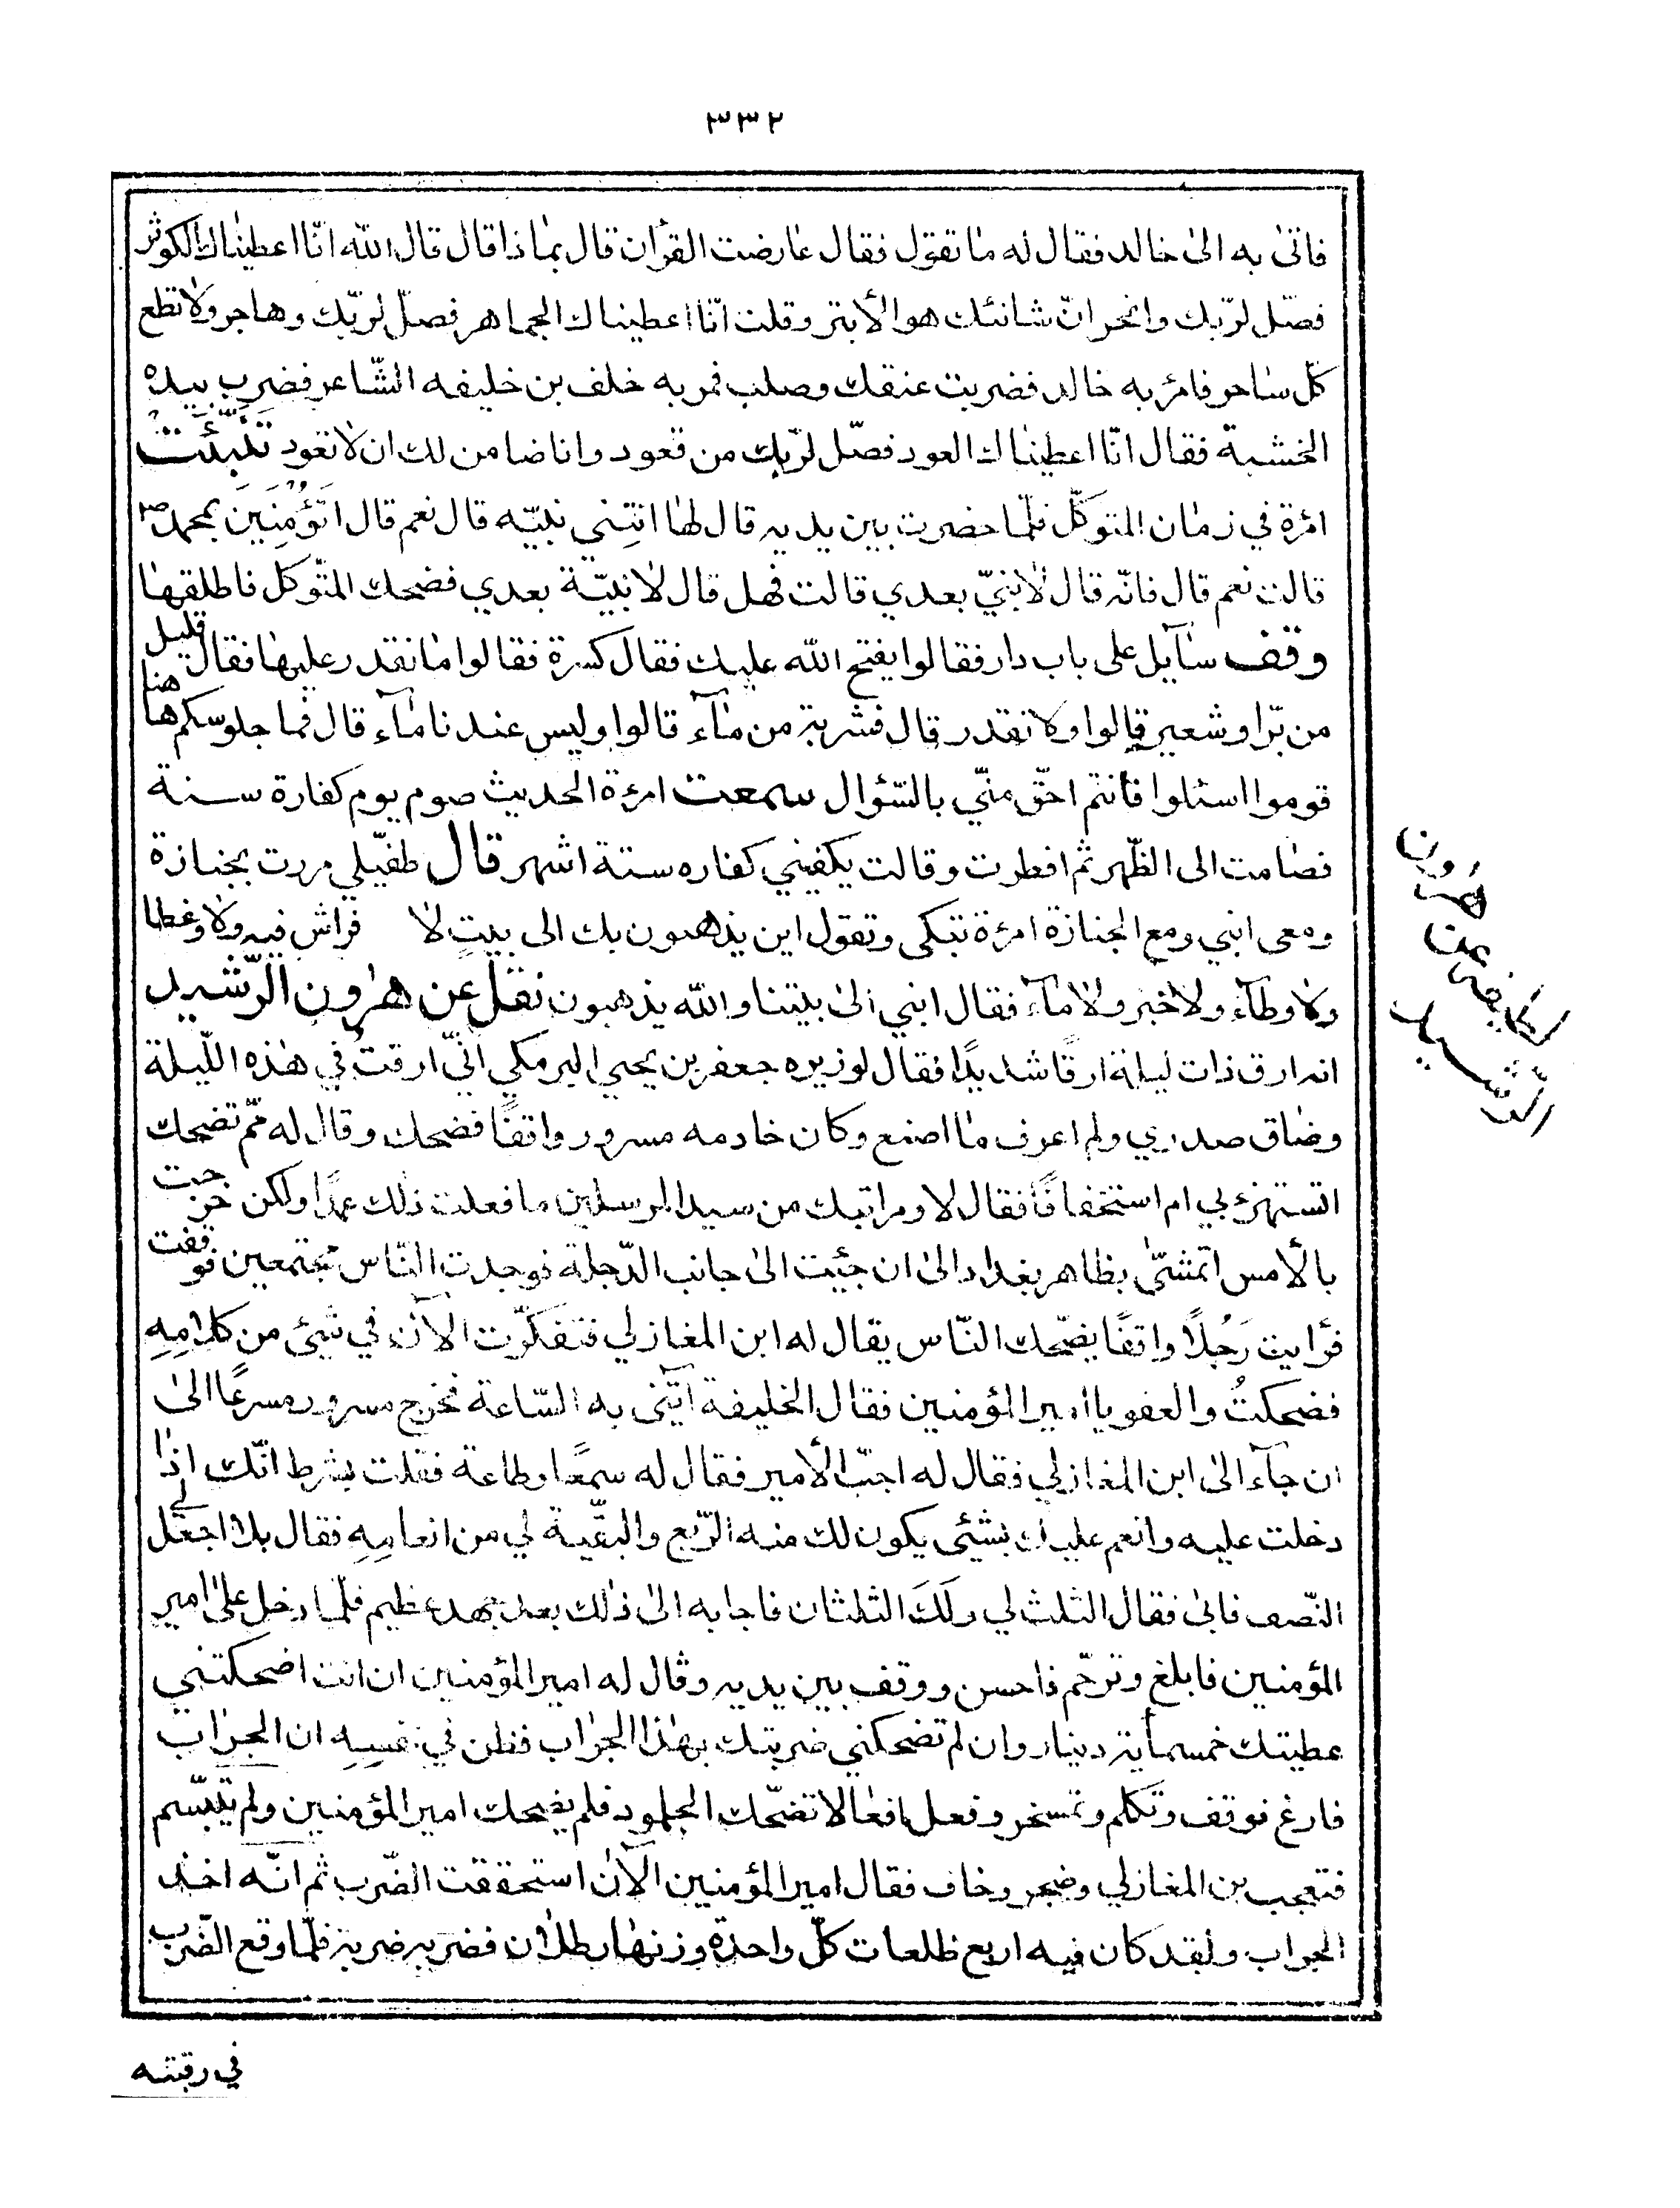 ٣٣٢
فاتى به الى خالد فقال له ما تقول فقال عارضت القرآن قال بماذا قال قال الله انّا اعطيناك الكوثر
فصّل لربّك وانحر انّ شانئك هو الأبتر وقلت انّا اعطيناك الجماهر فصلّ لربّك وهاجر ولا تطع
كلّ ساحر فامر به خالد فضربت عنقك وصلب فمر به خلف بن خليفه الشّاعر فضرب بيده
الخشبة فقال انّا اعطيناك العود فصّل لربّك من قعود وانا ضامن لك ان لا تعود تَنَبَّئَت
امرة في زمان المتوكّل فلمّا حضرت بين يديه قال لها انتِني نبيّه قال نعم قال اتُؤمِنينَ بمحمد ص
قالت نعم قال فانّه قال لا نبيّ بعدي قالت فهل قال لا نبيّة بعدي فضحك المتّوكل فاطلقها
وقف سآيل على باب دار فقالوا يفتح الله عليك فقال كسرة فقالوا ما نقدر عليها فقال قليل
من برّ او شعير قالوا ولا نقدر قال فشربة من مآء قالوا وليس عندنا مآء قال فما جلوسكم هاهنا
قوموا اسئلوا فأنتم احقّ منّي بالسّؤال سمعت امرءة الحديث صوم يوم كفارة سنة
فصامت الى الظّهر ثم افطرت وقالت يكفيني كفاره ستة اشهر قال طفيّلي مررت بجنازة
ومعى ابني ومع الجنازة امرءة تبكى وتقول اين يذهبون بك الى بيتٍ لا فراش فيه ولا وغطا
ولا وطآء ولا خبز ولا مآء فقال ابني الى بيتنا والله يذهبون نقل عن هرون الرّشيد
انه ارق ذات ليلة ارقًا شديدًا فقال لوزيره جعفر بن يحيى البرمكي انّي ارقتُ في هذه اللّيلة
وضاق صدري ولم اعرف ما اصنع وكان خادمه مسرور واقفًا فضحك وقال له ممّ تضحك
اتستهزئ بي ام استخفافًا فقال لا وقرابتك من سيد المرسلين ما فعلت ذلك عمدًا ولكن خرجت
بالأمس اتمشىّ بظاهر بغداد الى ان جئيت الى جانب الدّجلة فوجدت النّاس مجتمعين فوقفت
فرأيت رَجُلاً واقفًا يضحّك النّاس يقال له ابن المغازلي فتفكرّت الآن في شيئ من كلامِهِ
فضحكتُ والعفو يا امير المؤمنين فقال الخليفة آيتنى به السّاعة فخرج مسرور مسرعًا الى
ان جآء الى ابن المغازلي فقال له اجب الأمير فقال له سمعًا وطاعة فقلت بشرط انّك اذا
دخلت عليه وانعم عليك بشيئى يكون لك منه الرّبع والبقّية لي من انعامِهِ فقال بل اجعل لي
النّصف فابى فقال الثلث لي ولَكَ الثلثان فاجابه الى ذلك بعد جهد عظيم فلمّا دخل على امير
المؤمنين فابلغ وترحّم فاحسن ووقف بين يديه وقال له امير المؤمنين ان انت اضحكتني
عطيتك خمسمأية دينار وان لم تضحكني ضربتك بهذا الجراب فظن في نفسِهِ ان الجراب
فارغ فوقف وتكلم وتمسخر وفعل افعالا تضحّك الجلمود فلم يضحك امير المؤمنين ولم يتبسّم
فتعجب بن المغازلي وضجر وخاف فقال امير المؤمنين الآن استحققت الضّرب ثم انّه اخذ
الجراب ولقد كان فيه اربع ظلعات كلّ واحدة وزنها رطلان فضربه ضربة فلمّا وقع الضّرب
في رقبته
لطايفى عن هرون
الرّشيد